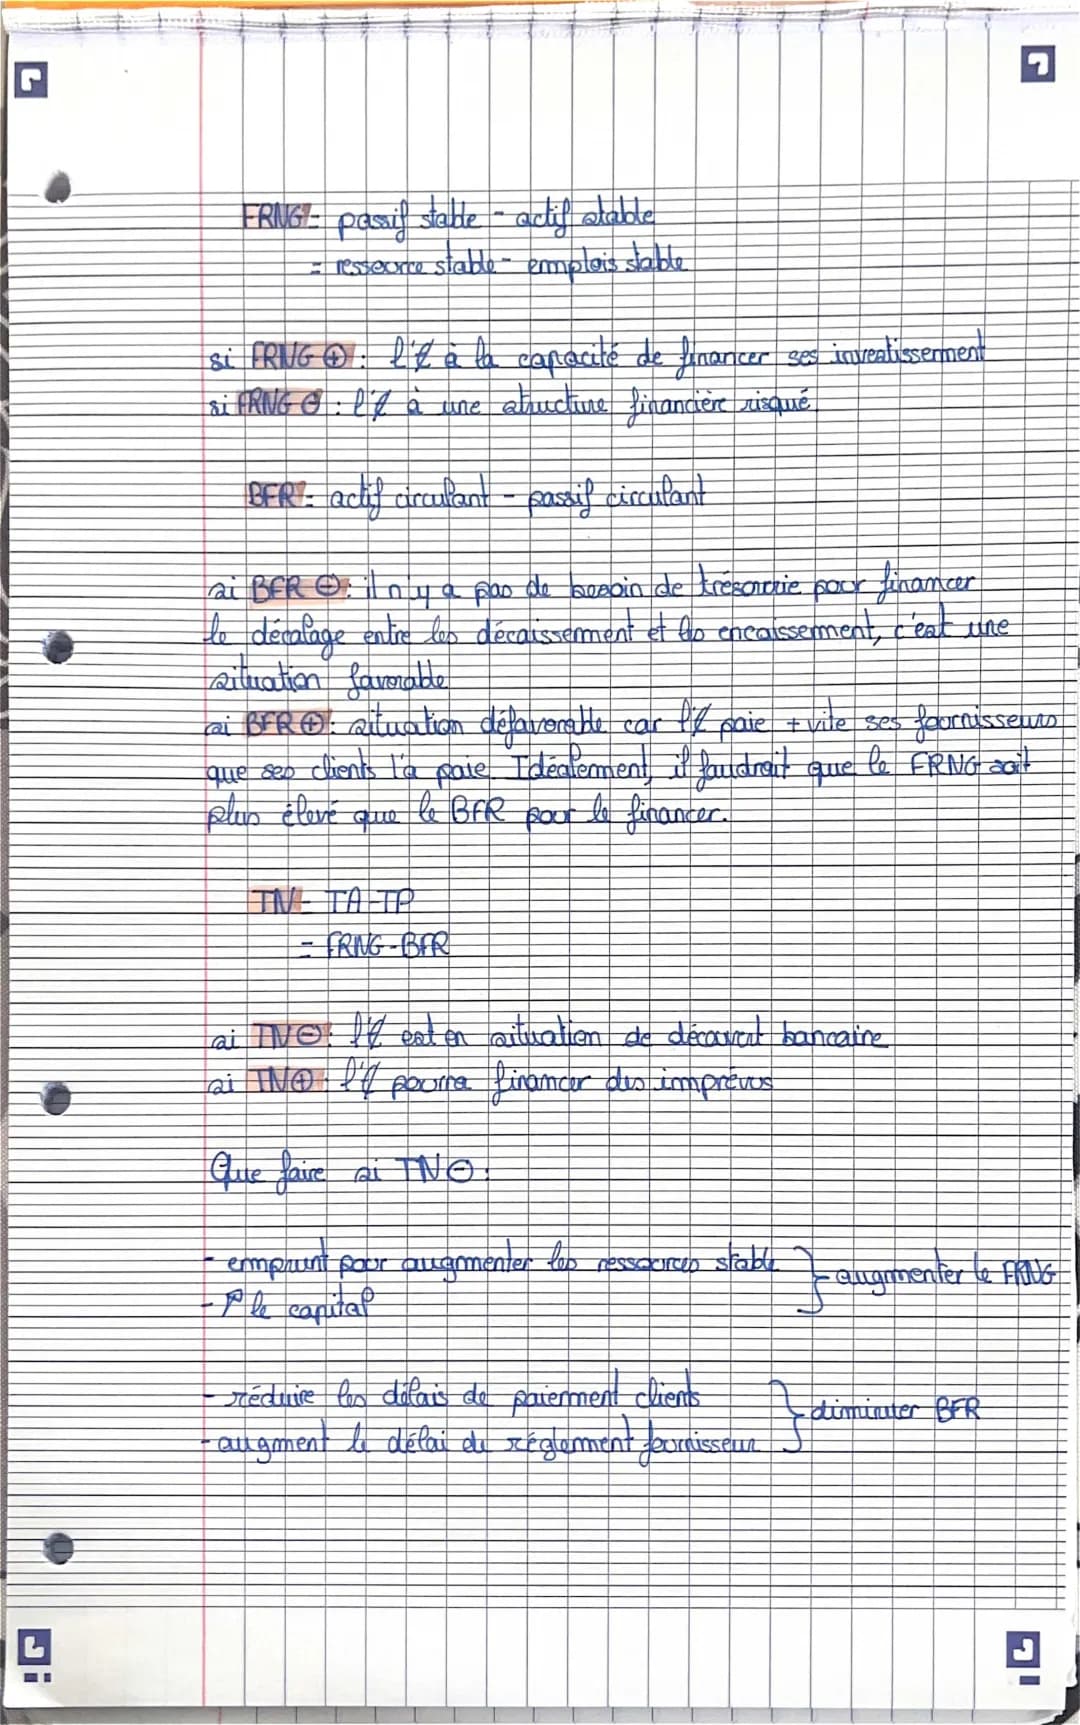 FRNG = passif stable - actif stable
= ressource stable - emplois stable
si FRNG ⊕ : l'E à la capacité de financer ses investissement
si FRNG ⊖ : l'E à une structure financière risqué.
BFR = actif circulant - passif circulant
si BFR ⊖ : il n'y a pas de besoin de trésorerie pour financer
le décalage entre les décaissement et les encaissement, c'est une
situation favorable
si BFR ⊕ : situation défavorable car l'E paie + vite ses fournisseurs
que ses clients l'a paie. Idéalement, il faudrait que le FRNG soit
plus élevé que le BFR pour le financer.
TN = TA - TP
= FRNG - BFR
si TN ⊖ : l'E est en situation de découvert bancaire
si TN ⊕ : l'E pourra financer des imprévus
Que faire si TN ⊖ :
- emprunt pour augmenter les ressources stable } augmenter le FRNG
- ↗ le capital
- réduire les délais de paiement clients } diminuer BFR
- augment le délai de réglement fournisseur